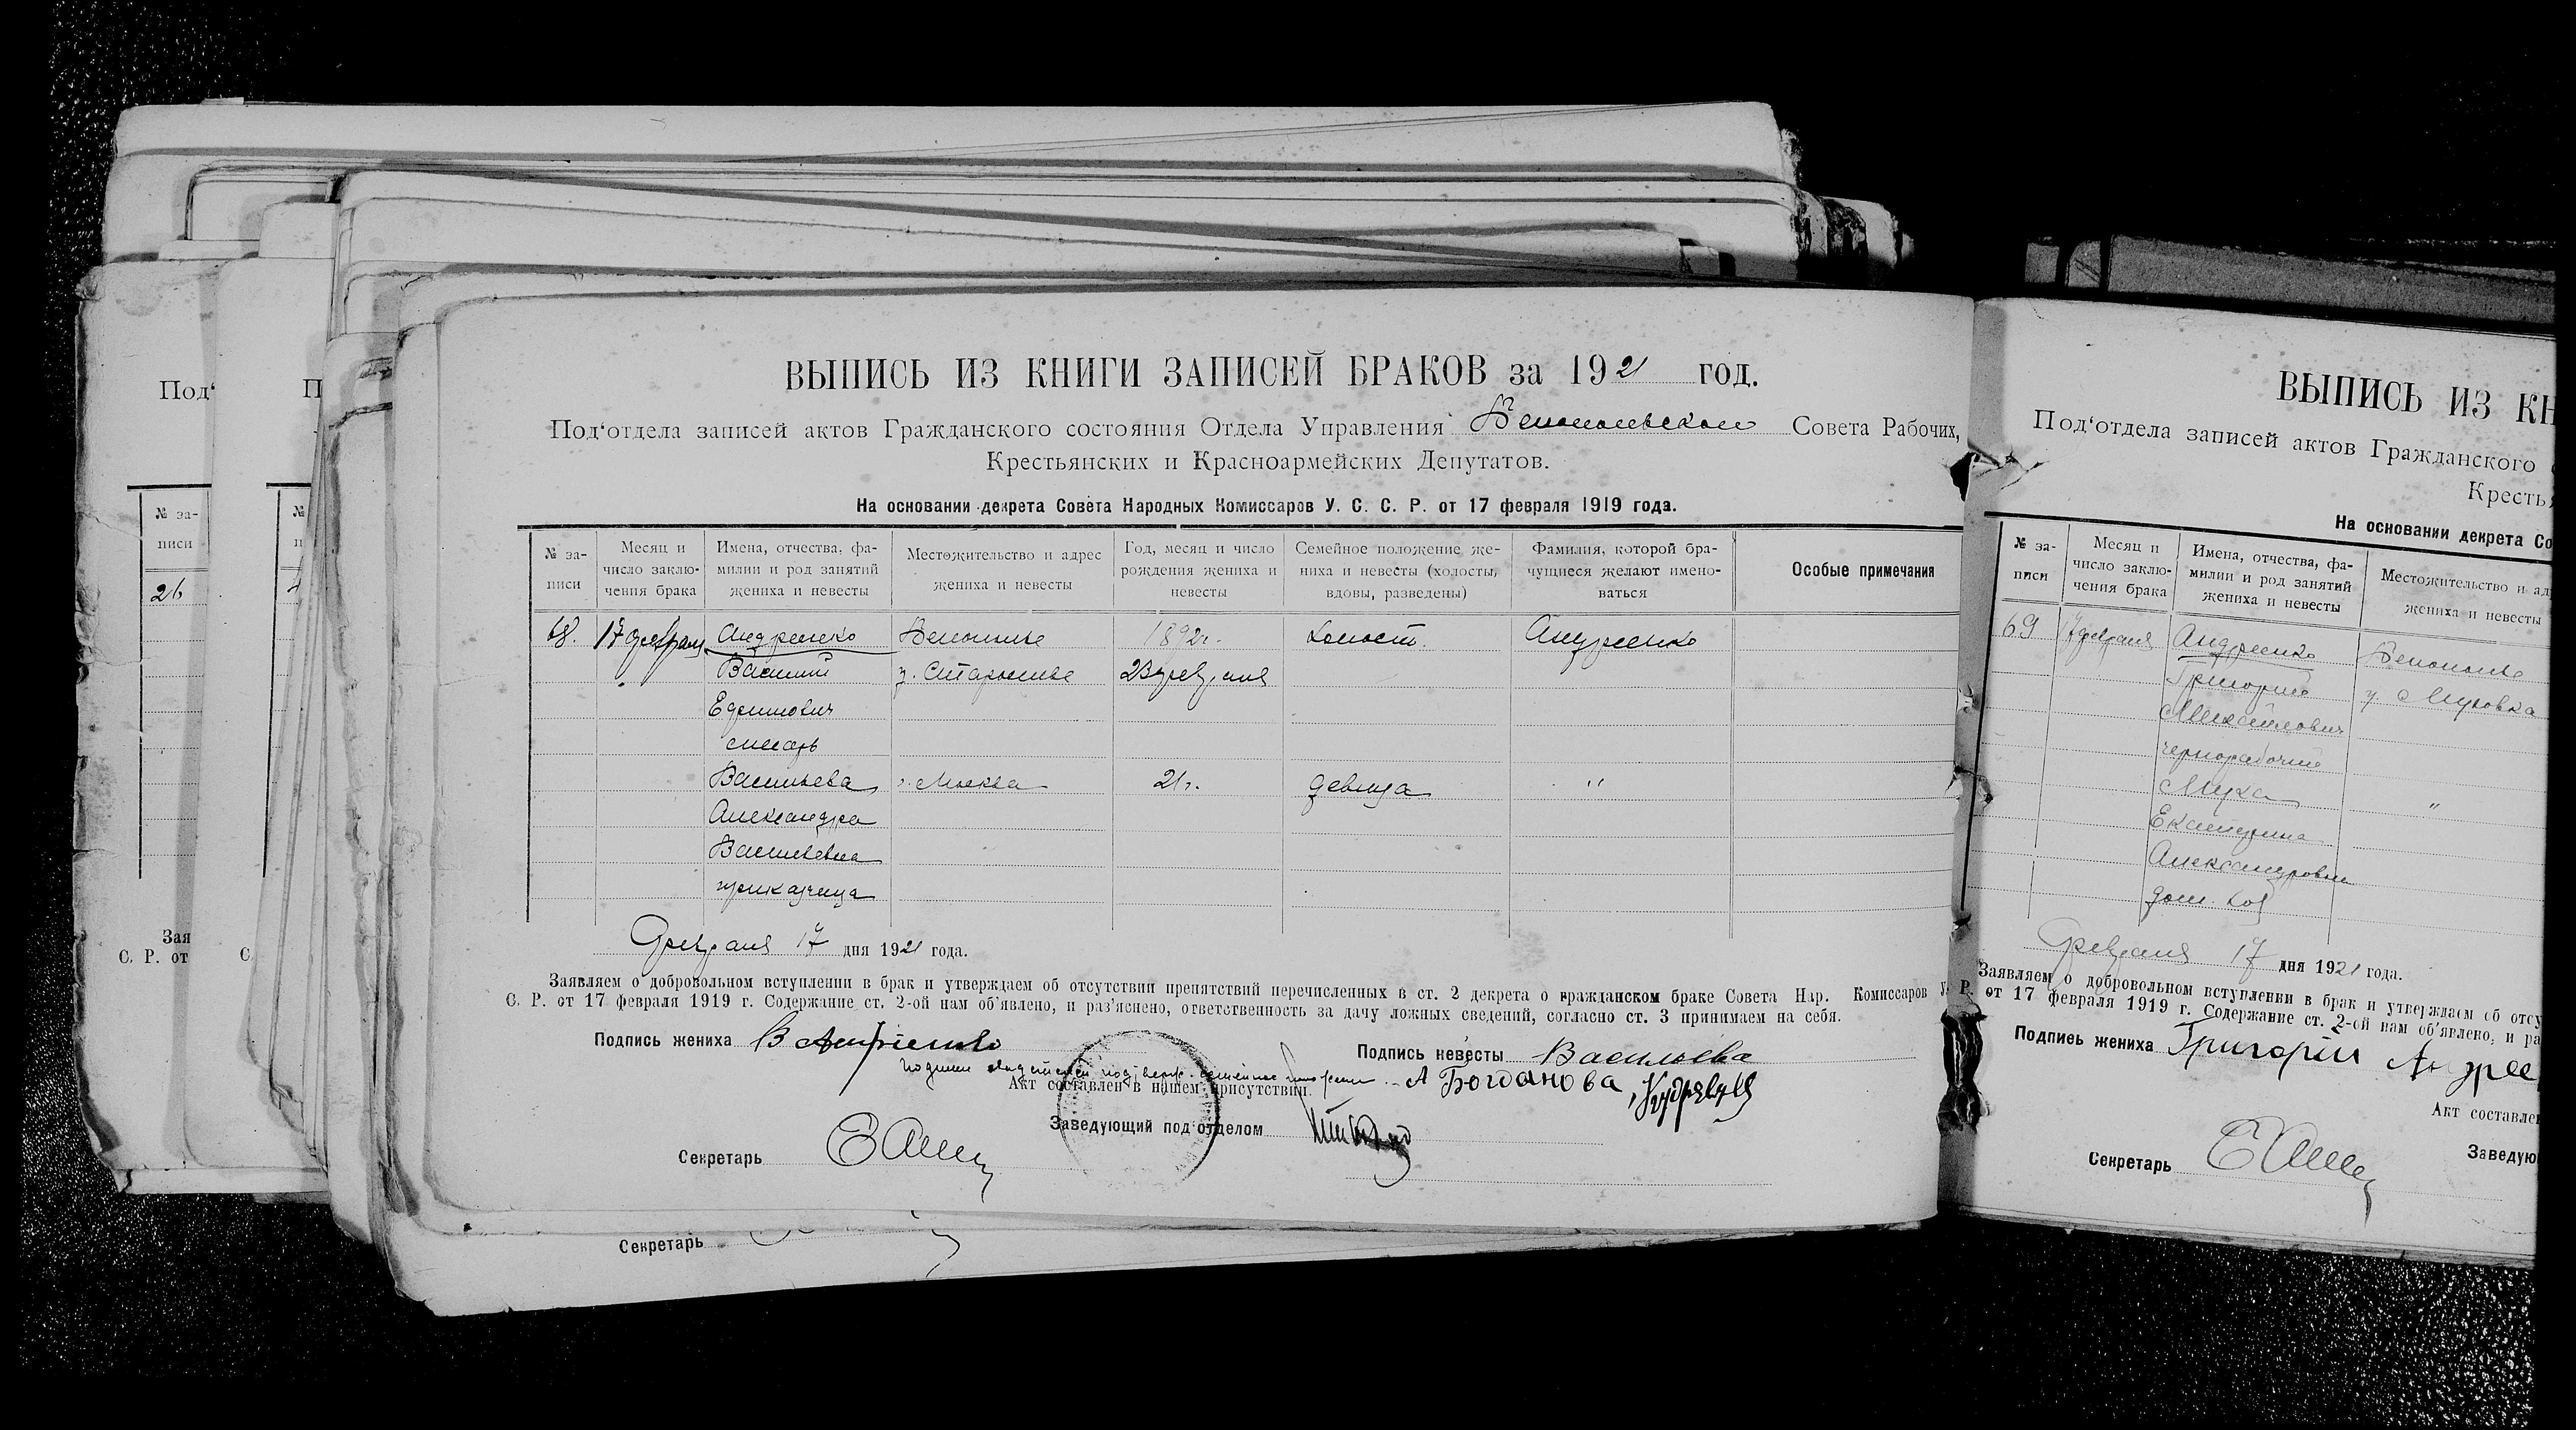 ВЫПИСЬ ИЗ КНИГИ ЗАПИСЕЙ БРАКОВ за 1921 год.
Под‘отдела записей актов Гражданского состояния Отдела Управления Совета Рабочих,
Крестьянских и Красноармейских Депутатов.
На основании декрета Совета Народных Комиссаров У. С. С. Р. от 17 февраля 1919 года.
№ за-
писи
Месяц и
число заклю-
чения брака
Имена, отчества, фа-
милии и род занятий
жениха и невесты
Местожительство и адрес
жениха и невесты
Год, месяц и число
рождения жениха и
невесты
Семейное положение же-
ниха и невесты (холосты,
вдовы, разведены)
Фамилия, которой бра-
чущиеся желают имено-
ваться
Особые примечания
68. 17 февраля Андреенко 1892г. холост. Андреенко
Василий
Ефимович
слесарь
Васильева Москва 21г. девица "
Александра
Васильевна
приказчица
Февраля 17 дня 1921 года.
Заявляем о добровольном вступлении в брак и утверждаем об отсутствии препятствий перечисленных в ст. 2 декрета о гражданском браке Совета Нар. Комиссаров У.
С. Р. от 17 февраля 1919 г. Содержание ст. 2-ой нам об‘явлено, и раз‘яснено, ответственность за дачу ложных сведений, согласно ст. 3 принимаем на себя.
Подпись жениха В Андреенко
Подпись невесты Васильева
А Богданова,
Акт составлен в нашем присутствии.
Заведующий под‘отделом
Секретарь
Секретарь
Под‘
№ за-
писи
26
Зая
С. Р. от
П
№
п
С.
ВЫПИСЬ ИЗ КН
Под‘отдела записей актов Гражданского с
Кресть
На основании декрета Со
№ за-
писи
Месяц и
число заклю-
чения брака
Имена, отчества, фа-
милии и род занятий
жениха и невесты
Местожительство и ад
жениха и невесты
69 17 февраля Андреенко
Григорий
Михайлович
чернорабочий
Муха "
Екатерина
Александровна
дом. хоз
Февраля 17 дня 1921 года.
Заявляем о добровольном вступлении в брак и утверждаем об отсу
Р. от 17 февраля 1919 г. Содержание ст. 2-ой нам об‘явлено, и ра
Подпись жениха Григорий Андрее
Акт составле
Заведую
Секретарь